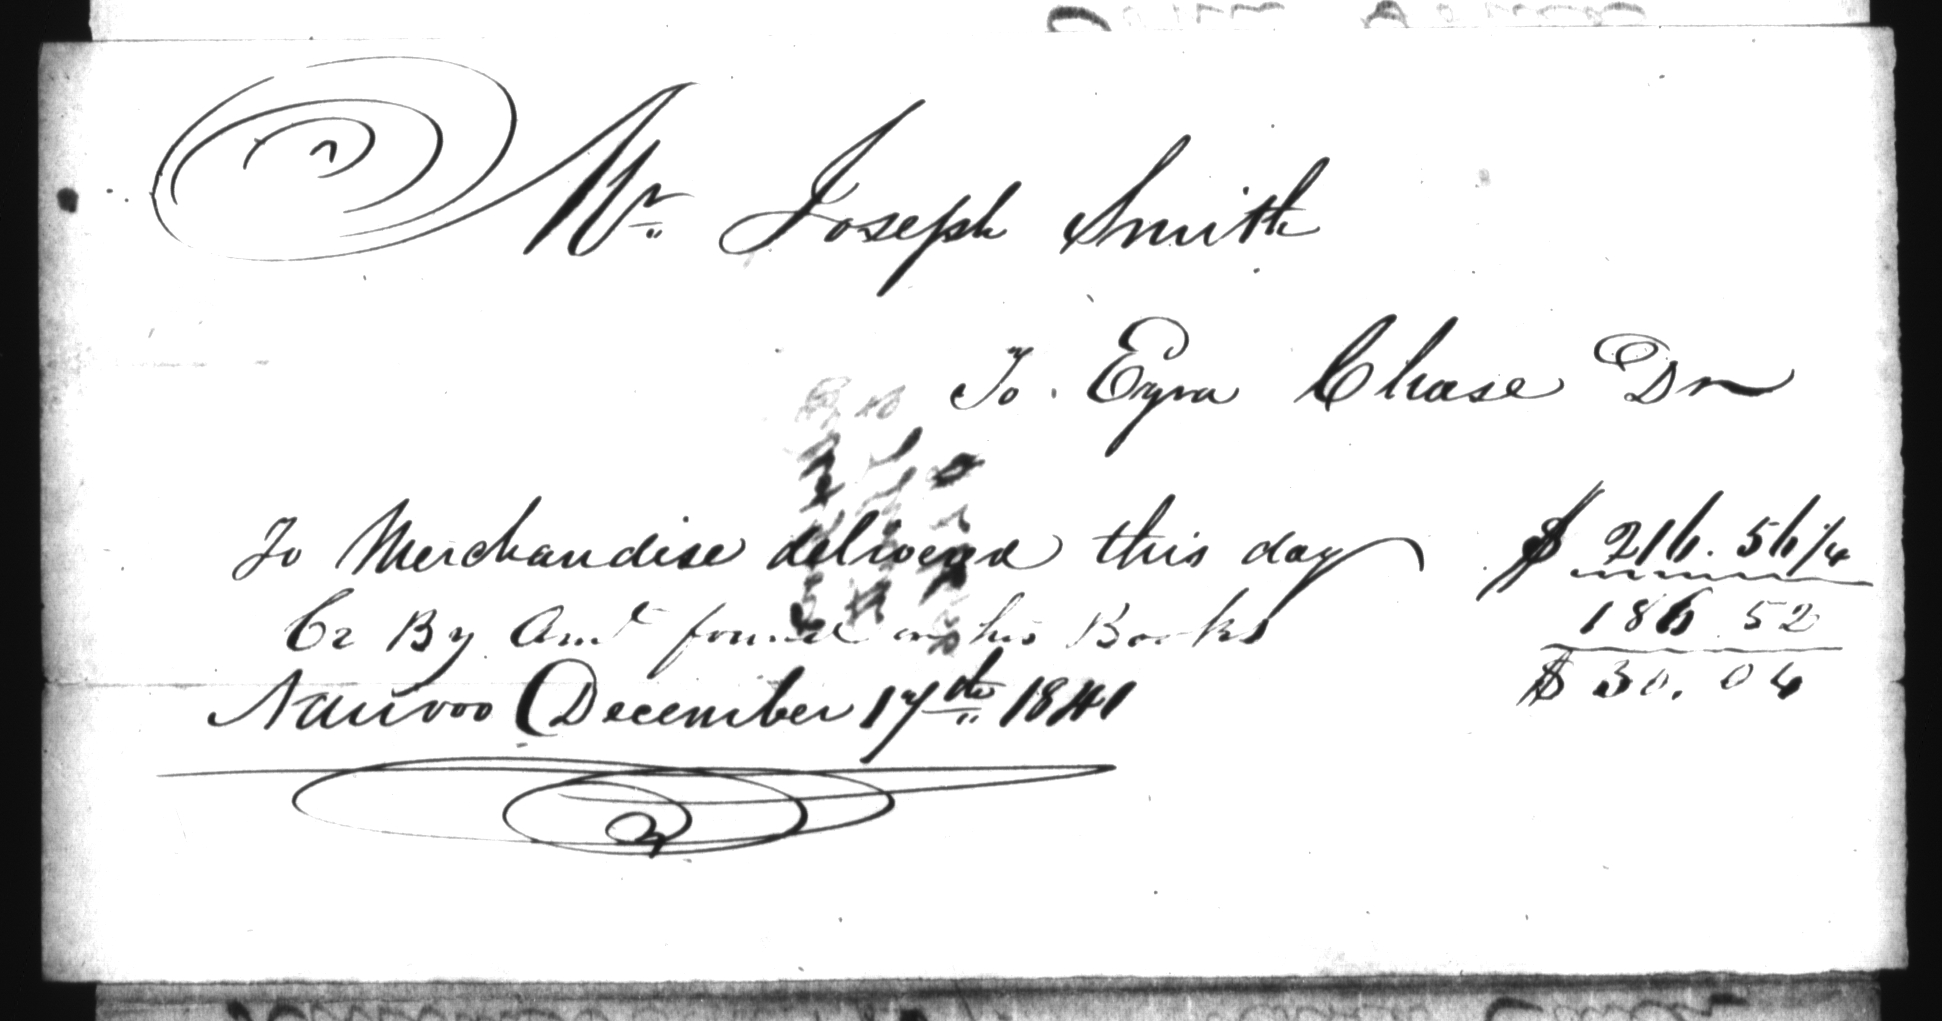 Mr. Joseph Smith
To. Ezra Chase Dr
To Merchandise delivered this day $ 216. 56 1/4
Cr By Amt found on his Books 186 52
$ 30. 04
Nauvoo December 17th 1841